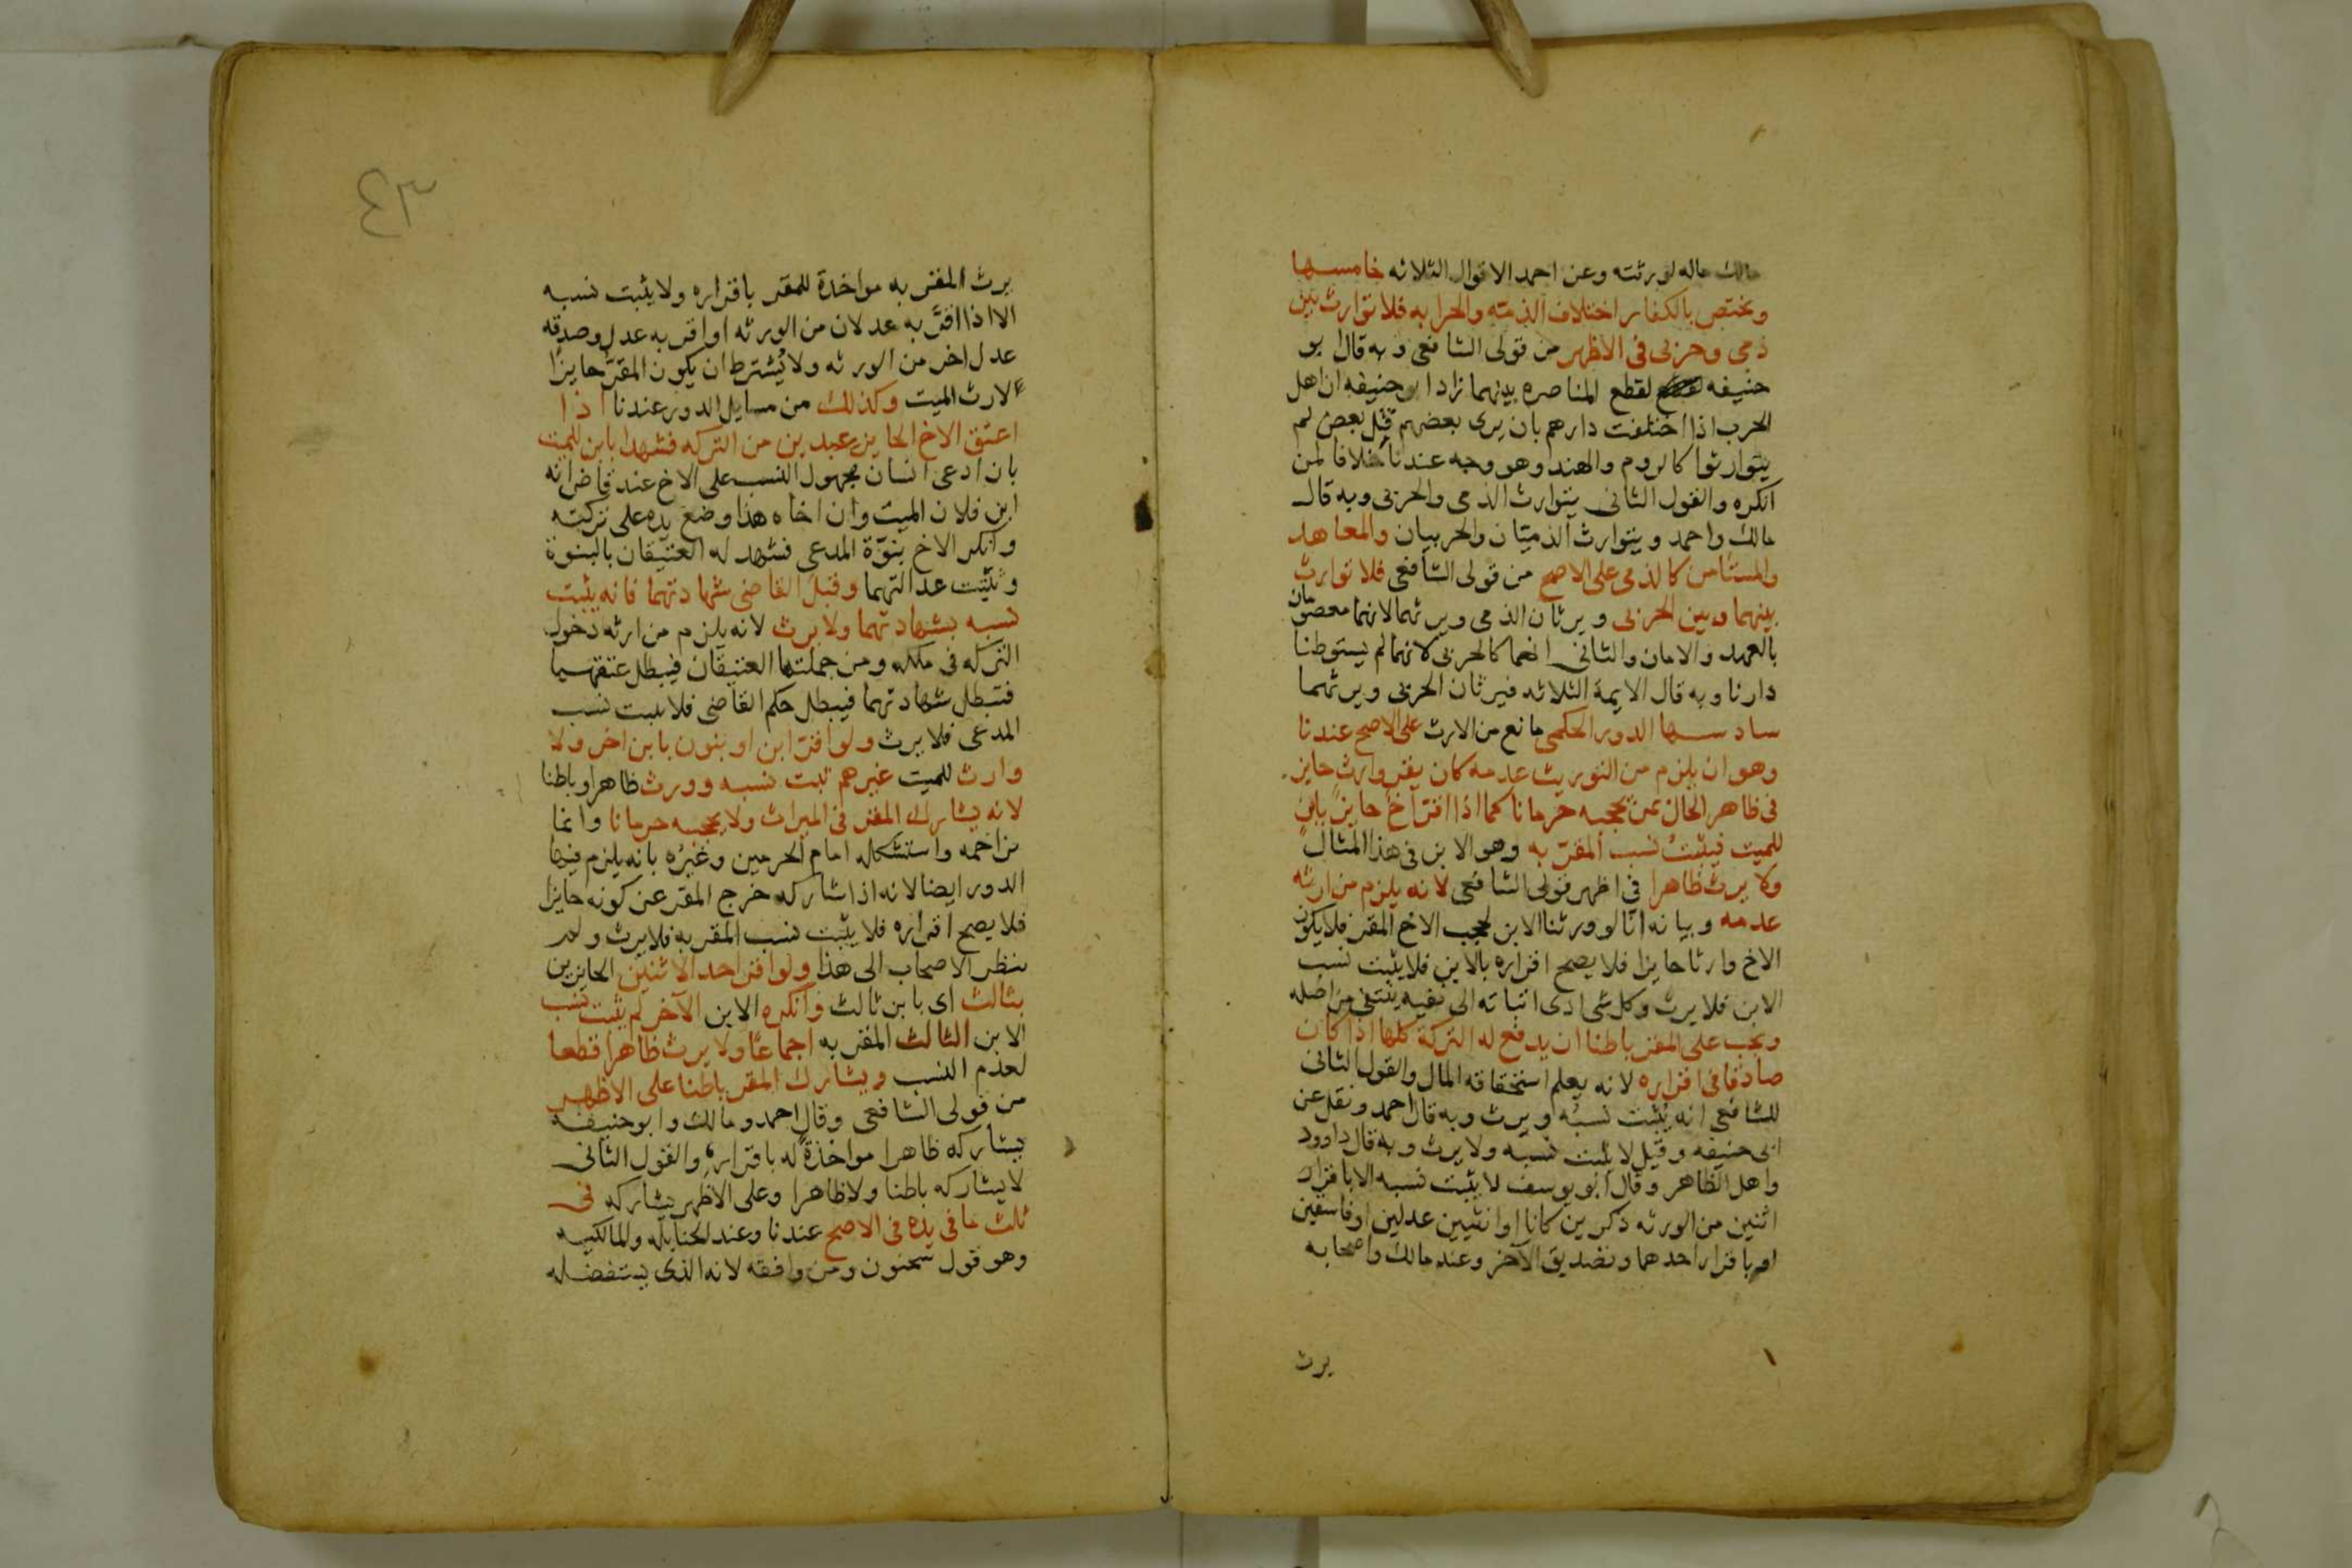 مالك ماله لورثته وعن احمد الاقوال الثلاثه خامسها
ويختص بالكفار اختلاف الذمته والحرابه فلا توارث بين
ذمى وحربى فى الاظهر من قولى الشافعى وبه قال ابو
حنيفه لقطع المناصره بينهما زاد ابو حنيفه ان اهل
الحرب اذا اختلفت دارهم بان يرى بعضهم قتل بعض لم
يتوارثوا كالروم والهند وهو وجه عندنا خلافا لمن
انكره والقول الثانى يتوارث الذمى والحربى وبه قال
مالك واحمد ويتوارث الذميان والحربيان والمعاهد
والمستامن كالذمى على الاصح من قولى الشافعى فلا توارث
بينهما وبين الحربى ويرثان الذمى ويرثهما لانهما معصومان
بالعهد والامان والثانى انهما كالحربى لانهما لم يستوطنا
دارنا وبه قال الايمة الثلاثه فيرثان الحربى ويرثهما
سادسها الدور الحكمى مانع من الارث على الاصح عندنا
وهو ان يلزم من التوريث عدمه كان يقر وارث حايز
فى ظاهر الحال بمن يحجبه حرمانا كما اذا اقر اخ حايز بابن
للميت فيثبت نسب المقر به وهو الابن فى هذا المثال
ولا يرث ظاهرا فى اظهر قولى الشافعى لانه يلزم من ارثه
عدمه وبيانه انا لو ورثنا الابن لحجب الاخ المقر فلا يكون
الاخ وارثا حايزا فلا يصح اقراره بالابن فلا يثبت نسب
الابن فلا يرث وكل شى ادى اثباته الى نفيه ينتفى من اصله
ويجب على المقر باطنا ان يدفع له التركة كلها اذا كان
صادقا فى اقراره لانه يعلم استحقاقه المال والقول الثانى
للشافعى انه يثبت نسبه ويرث وبه قال احمد ونقل عن
ابى حنيفه وقيل لا يثبت نسبه ولا يرث وبه قال داوود
واهل الظاهر وقال ابو يوسف لا يثبت نسبه الا باقرار
اثنين من الورثه ذكرين كانا او انثيين عدلين او فاسقين
او باقرار احدهما وتصديق الآخر وعند مالك واصحابه
يرث
٤٣
يرث المقر به مواخذة للمقر باقراره ولا يثبت نسبه
الا اذا اقر به عدلان من الورثه او اقر به عدل وصدقه
عدل اخر من الورثه ولا يشترط ان يكون المقر حايزا
لارث الميت وكذلك من مسايل الدور عندنا اذا
اعتق الاخ الحايز عبدين من التركه فشهدا بابن للميت
بان ادعى انسان مجهول النسب على الاخ عند قاض انه
ابن فلان الميت وان اخاه هذا وضع يده على تركته
وانكر الاخ بنوّة المدعى فشهد له العتيقان بالبنوة
وثبتت عدالتهما وقبل القاضى شهادتهما فانه يثبت
نسبه بشهادتهما ولا يرث لانه يلزم من ارثه دخول
التركه فى ملكه ومن جملتها العتيقان فيبطل عتقهما
فتبطل شهادتهما فيبطل حكم القاضى فلا يثبت نسب
المدعى فلا يرث ولو اقر ابن او بنون بابن اخر ولا
وارث للميت غيرهم ثبت نسبه وورث ظاهرا وباطنا
لانه يشارك المقر فى الميراث ولا يحجبه حرمانا وانما
يزاحمه واستشكاله امام الحرمين وغيره بانه يلزم فيها
الدور ايضا لانه اذا شاركه خرج المقر عن كونه حايزا
فلا يصح اقراره فلا يثبت نسب المقر به فلا يرث ولم
ينظر الاصحاب الى هذا ولو اقر احد الاثنين الحايزين
بثالث اى بابن ثالث وانكره الابن الآخر لم يثبت نسب
الابن الثالث المقر به اجماعا ولا يرث ظاهرا قطعا
لعدم النسب ويشارك المقر باطنا على الاظهر
من قولى الشافعى وقال احمد ومالك وابو حنيفه
يشاركه ظاهرا مواخذة له باقراره والقول الثانى
لا يشاركه باطنا ولا ظاهرا وعلى الاظهر يشاركه فى
ثلث ما فى يده فى الاصح عندنا وعند الحنابله والمالكيه
وهو قول سحنون ومن وافقه لانه الذى يستفضله